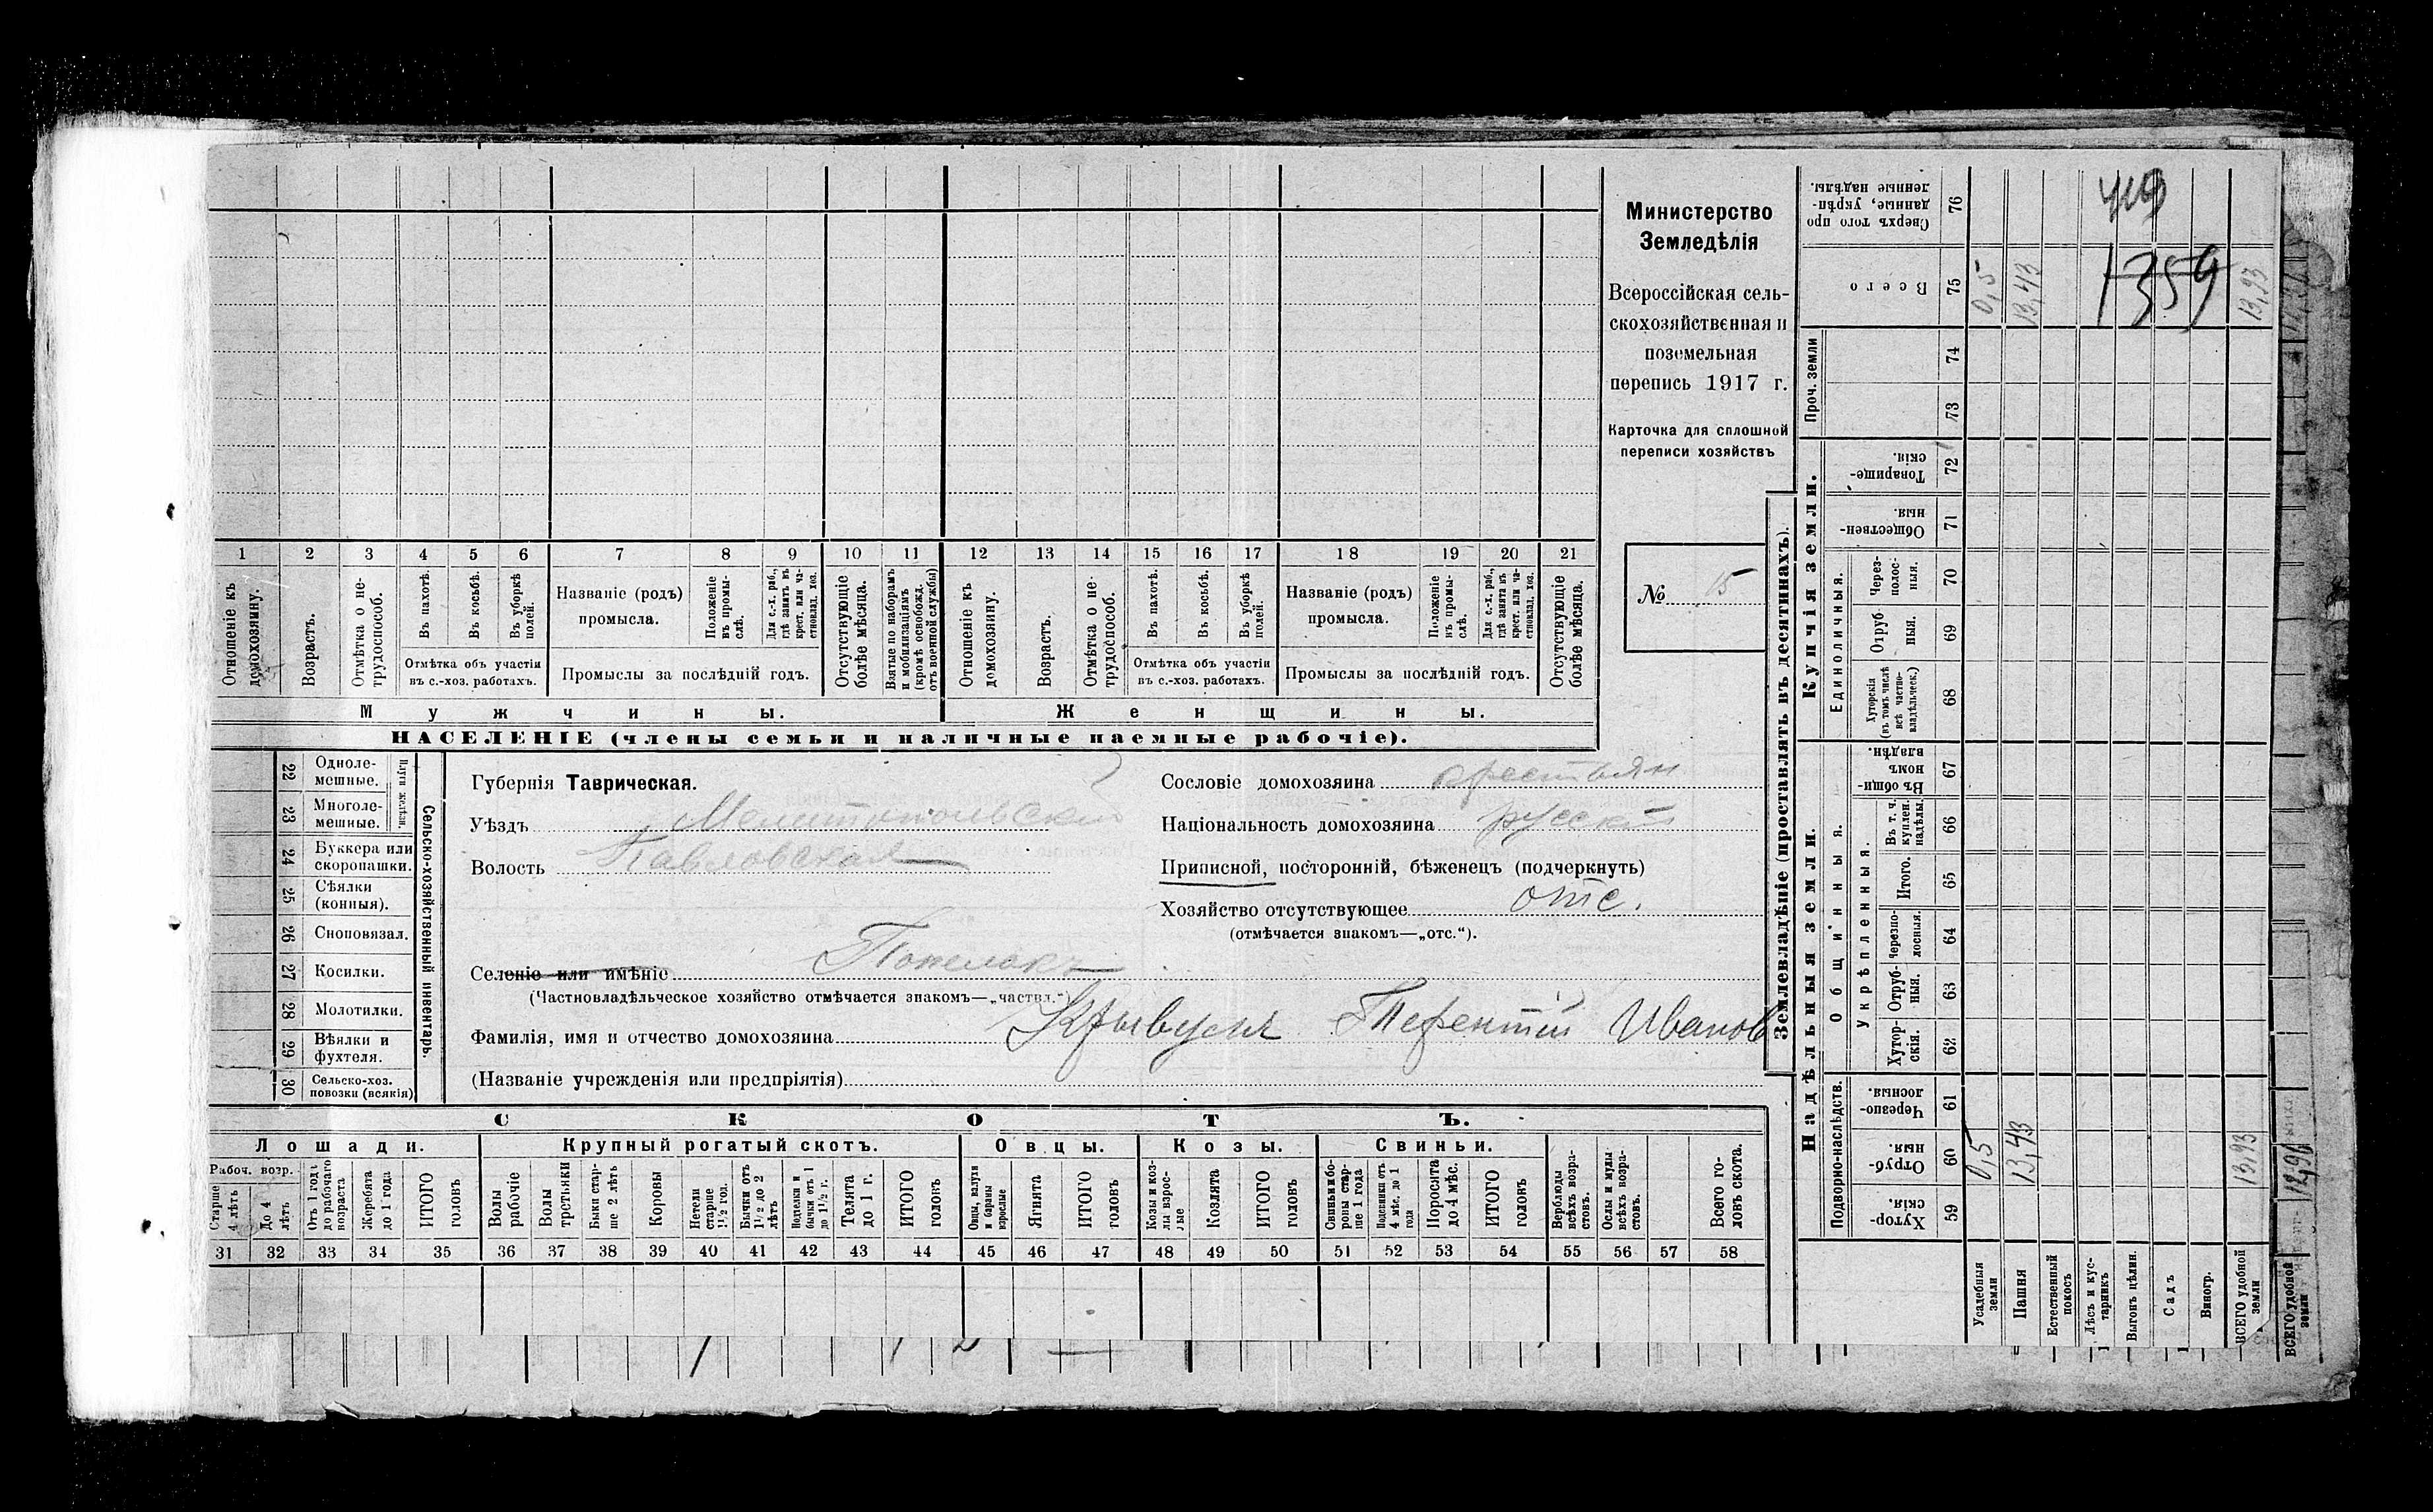 Министерство
Земледѣлія
Всероссійская сель-
скохозяйственная и
поземельная
перепись 1917 г.
Карточка для сплошной
переписи хозяйствъ
№ 15
1 2 3 4 5 6 7 8 9 10 11 12 13 14 15 16 17 18 19 20 21
Отношеніе къ домохозяину.
Возрастъ.
Отмѣтка о не-трудоспособ.
Въ пахотѣ.
Въ косьбѣ.
Въ уборкѣ полей.
Отмѣтка объ участіи
въ с.-хоз. работахъ.
Названіе (родъ)
промысла.
Положеніе въ промы-слѣ.
Для с.-х. раб., гдѣ занятъ въ крест. или ча-стновлад. хоз.
Промыслы за послѣдній годъ.
Отсутствующіе болѣе мѣсяца.
Взятые по наборамъ и мобилизаціямъ (кромѣ освобожд. отъ военной службы)
Отношеніе къ домохозяину.
Возрастъ.
Отмѣтка о не-трудоспособ.
Въ пахотѣ.
Въ косьбѣ.
Въ уборкѣ полей.
Отмѣтка объ участіи
въ с.-хоз. работахъ.
Названіе (родъ)
промысла.
Положеніе въ промы-слѣ.
Для с.-х. раб., гдѣ занята въ крест. или ча-стновлад. хоз.
Промыслы за послѣдній годъ.
Отсутствующіе болѣе мѣсяца.
Мужчины.
Женщины.
НАСЕЛЕНІЕ (члены семьи и наличные наемные рабочіе).
Сельско-хозяйственный инвентарь.
Плуги желѣзн.
22 Одноле-мешные.
23 Многоле-мешные.
24 Буккера или скоропашки.
25 Сѣялки (конныя).
26 Сноповязал.
27 Косилки.
28 Молотилки.
29 Вѣялки и фухтеля.
30 Сельско-хоз. повозки (всякія)
Губернія Таврическая.
Уѣздъ Мелитопольскій
Волость Павловская
Селеніе или имѣніе
(Частновладѣльческое хозяйство отмѣчается знакомъ—„частвл.")
Сословіе домохозяина крестьян
Національность домохозяина русскій
Приписной, посторонній, бѣженецъ (подчеркнуть)
Хозяйство отсутствующее отс.
(отмѣчается знакомъ—„отс.").
Фамилія, имя и отчество домохозяина Терентій Иванов
(Названіе учрежденія или предпріятія)
СКОТЪ.
Лошади.
Крупный рогатый скотъ.
Овцы.
Козы.
Свиньи.
Рабоч. возр.
Старше 4 лѣтъ
До 4 лѣтъ
Отъ 1 года до рабочаго возраста
Жеребята до 1 года
ИТОГО головъ
Волы рабочіе
Волы третьяки
Быки стар-ше 2 лѣтъ
Коровы
Нетели старше 1½ год.
Бычки отъ 1½ до 2 лѣтъ
Подтелки и бычки отъ 1 до 1½ г.
Телята до 1 г.
ИТОГО головъ
Овцы, валухи и бараны взрослые
Ягнята
ИТОГО головъ
Козы и коз-лы взрос-лые
Козлята
ИТОГО головъ
Свиньи и бо-ровы стар-ше 1 года
Подсвинки отъ 4 мѣс. до 1 года
Поросята до 4 мѣс.
ИТОГО головъ
Верблюды всѣхъ возра-стовъ.
Ослы и мулы всѣхъ возра-стовъ.
Всего го-ловъ скота.
31 32 33 34 35 36 37 38 39 40 41 42 43 44 45 46 47 48 49 50 51 52 53 54 55 56 57 58
Землевладѣніе (проставлять въ десятинахъ).
Купчія земли.
Надѣльныя земли.
Сверхъ того про-данные, укрѣп-ленные надѣлы. 76
Всего 75
0,5
13,43
13,93
1359
Проч. земли
74
73
Товарище-скія. 72
Обществен-ныя. 71
Единоличныя.
Через-полос-ныя. 70
Отруб-ныя. 69
Хуторскія (въ томъ числѣ всѣ частно-владѣльческ.) 68
Общинныя.
Въ общи-номъ владѣн. 67
Укрѣпленныя.
Въ т. ч. куплен. надѣлы. 66
Итого. 65
Черезпо-лосныя. 64
Отруб-ныя. 63
Хутор-скія. 62
Подворно-наслѣдств.
Черезпо-лосныя. 61
Отруб-ныя. 60
0,5
13,43
13,93
Хутор-скія. 59
Усадебныя земли
Пашня
Естественный покосъ
Лѣсъ и кус-тарникъ
Выгонъ цѣлин.
Садъ
Виногр.
ВСЕГО удобной земли
ВСЕГО удобной земли